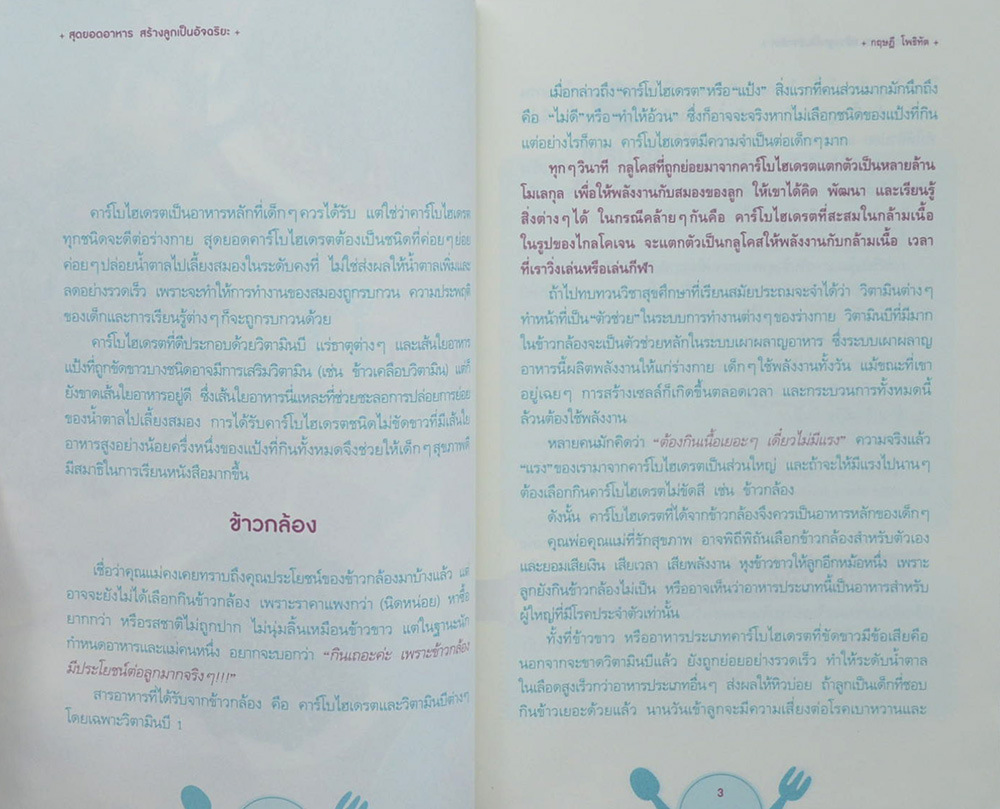 + สุดยอดอาหาร สร้างลูกเป็นอัจฉริยะ +
คาร์โบไฮเดรตเป็นอาหารหลักที่เด็กๆควรได้รับ แต่ใช่ว่าคาร์โบไฮเดรต
ทุกชนิดจะดีต่อร่างกาย สุดยอดคาร์โบไฮเดรตต้องเป็นชนิดที่ค่อยๆย่อย
ค่อยๆปล่อยน้ำตาลไปเลี้ยงสมองในระดับคงที่ ไม่ใช่ส่งผลให้น้ำตาลเพิ่มและ
ลดอย่างรวดเร็ว เพราะจะทำให้การทำงานของสมองถูกรบกวน ความประพฤติ
ของเด็กและการเรียนรู้ต่างๆก็จะถูกรบกวนด้วย
คาร์โบไฮเดรตที่ดีประกอบด้วยวิตามินบี แร่ธาตุต่างๆ และเส้นใยอาหาร
แป้งที่ถูกขัดขาวบางชนิดอาจมีการเสริมวิตามิน (เช่น ข้าวเคลือบวิตามิน) แต่ก็
ยังขาดเส้นใยอาหารอยู่ดี ซึ่งเส้นใยอาหารนี่แหละที่ช่วยชะลอการปล่อยการย่อย
ของน้ำตาลไปเลี้ยงสมอง การได้รับคาร์โบไฮเดรตชนิดไม่ขัดขาวที่มีเส้นใย
อาหารสูงอย่างน้อยครึ่งหนึ่งของแป้งที่กินทั้งหมดจึงช่วยให้เด็กๆสุขภาพดี
มีสมาธิในการเรียนหนังสือมากขึ้น
ข้าวกล้อง
เชื่อว่าคุณแม่คงเคยทราบถึงคุณประโยชน์ของข้าวกล้องมาบ้างแล้ว แต่
อาจจะยังไม่ได้เลือกกินข้าวกล้อง เพราะราคาแพงกว่า (นิดหน่อย) หาซื้อ
ยากกว่า หรือรสชาติไม่ถูกปาก ไม่นุ่มลิ้นเหมือนข้าวขาว แต่ในฐานะนัก
กำหนดอาหารและแม่คนหนึ่ง อยากจะบอกว่า “กินเถอะค่ะ เพราะข้าวกล้อง
มีประโยชน์ต่อลูกมากจริงๆ!!!”
สารอาหารที่ได้รับจากข้าวกล้อง คือ คาร์โบไฮเดรตและวิตามินบีต่างๆ
โดยเฉพาะวิตามินบี 1
+ กฤษฎี โพธิทัต +
เมื่อกล่าวถึง“คาร์โบไฮเดรต”หรือ“แป้ง” สิ่งแรกที่คนส่วนมากมักนึกถึง
คือ “ไม่ดี”หรือ“ทำให้อ้วน” ซึ่งก็อาจจะจริงหากไม่เลือกชนิดของแป้งที่กิน
แต่อย่างไรก็ตาม คาร์โบไฮเดรตมีความจำเป็นต่อเด็กๆมาก
ทุกๆวินาที กลูโคสที่ถูกย่อยมาจากคาร์โบไฮเดรตแตกตัวเป็นหลายล้าน
โมเลกุล เพื่อให้พลังงานกับสมองของลูก ให้เขาได้คิด พัฒนา และเรียนรู้
สิ่งต่างๆได้ ในกรณีคล้ายๆกันคือ คาร์โบไฮเดรตที่สะสมในกล้ามเนื้อ
ในรูปของไกลโคเจน จะแตกตัวเป็นกลูโคสให้พลังงานกับกล้ามเนื้อ เวลา
ที่เราวิ่งเล่นหรือเล่นกีฬา
ถ้าไปทบทวนวิชาสุขศึกษาที่เรียนสมัยประถมจะจำได้ว่า วิตามินต่างๆ
ทำหน้าที่เป็น“ตัวช่วย”ในระบบการทำงานต่างๆของร่างกาย วิตามินบีที่มีมาก
ในข้าวกล้องจะเป็นตัวช่วยหลักในระบบเผาผลาญอาหาร ซึ่งระบบเผาผลาญ
อาหารนี้ผลิตพลังงานให้แก่ร่างกาย เด็กๆใช้พลังงานทั้งวัน แม้ขณะที่เขา
อยู่เฉยๆ การสร้างเซลล์ก็เกิดขึ้นตลอดเวลา และกระบวนการทั้งหมดนี้
ล้วนต้องใช้พลังงาน
หลายคนมักคิดว่า “ต้องกินเนื้อเยอะๆ เดี๋ยวไม่มีแรง” ความจริงแล้ว
“แรง”ของเรามาจากคาร์โบไฮเดรตเป็นส่วนใหญ่ และถ้าจะให้มีแรงไปนานๆ
ต้องเลือกกินคาร์โบไฮเดรตไม่ขัดสี เช่น ข้าวกล้อง
ดังนั้น คาร์โบไฮเดรตที่ได้จากข้าวกล้องจึงควรเป็นอาหารหลักของเด็กๆ
คุณพ่อคุณแม่ที่รักสุขภาพ อาจพิถีพิถันเลือกข้าวกล้องสำหรับตัวเอง
และยอมเสียเงิน เสียเวลา เสียพลังงาน หุงข้าวขาวให้ลูกอีกหม้อหนึ่ง เพราะ
ลูกยังกินข้าวกล้องไม่เป็น หรืออาจเห็นว่าอาหารประเภทนี้เป็นอาหารสำหรับ
ผู้ใหญ่ที่มีโรคประจำตัวเท่านั้น
ทั้งที่ข้าวขาว หรืออาหารประเภทคาร์โบไฮเดรตที่ขัดขาวมีข้อเสียคือ
นอกจากจะขาดวิตามินบีแล้ว ยังถูกย่อยอย่างรวดเร็ว ทำให้ระดับน้ำตาล
ในเลือดสูงเร็วกว่าอาหารประเภทอื่นๆ ส่งผลให้หิวบ่อย ถ้าลูกเป็นเด็กที่ชอบ
กินข้าวเยอะด้วยแล้ว นานวันเข้าลูกจะมีความเสี่ยงต่อโรคเบาหวานและ
3